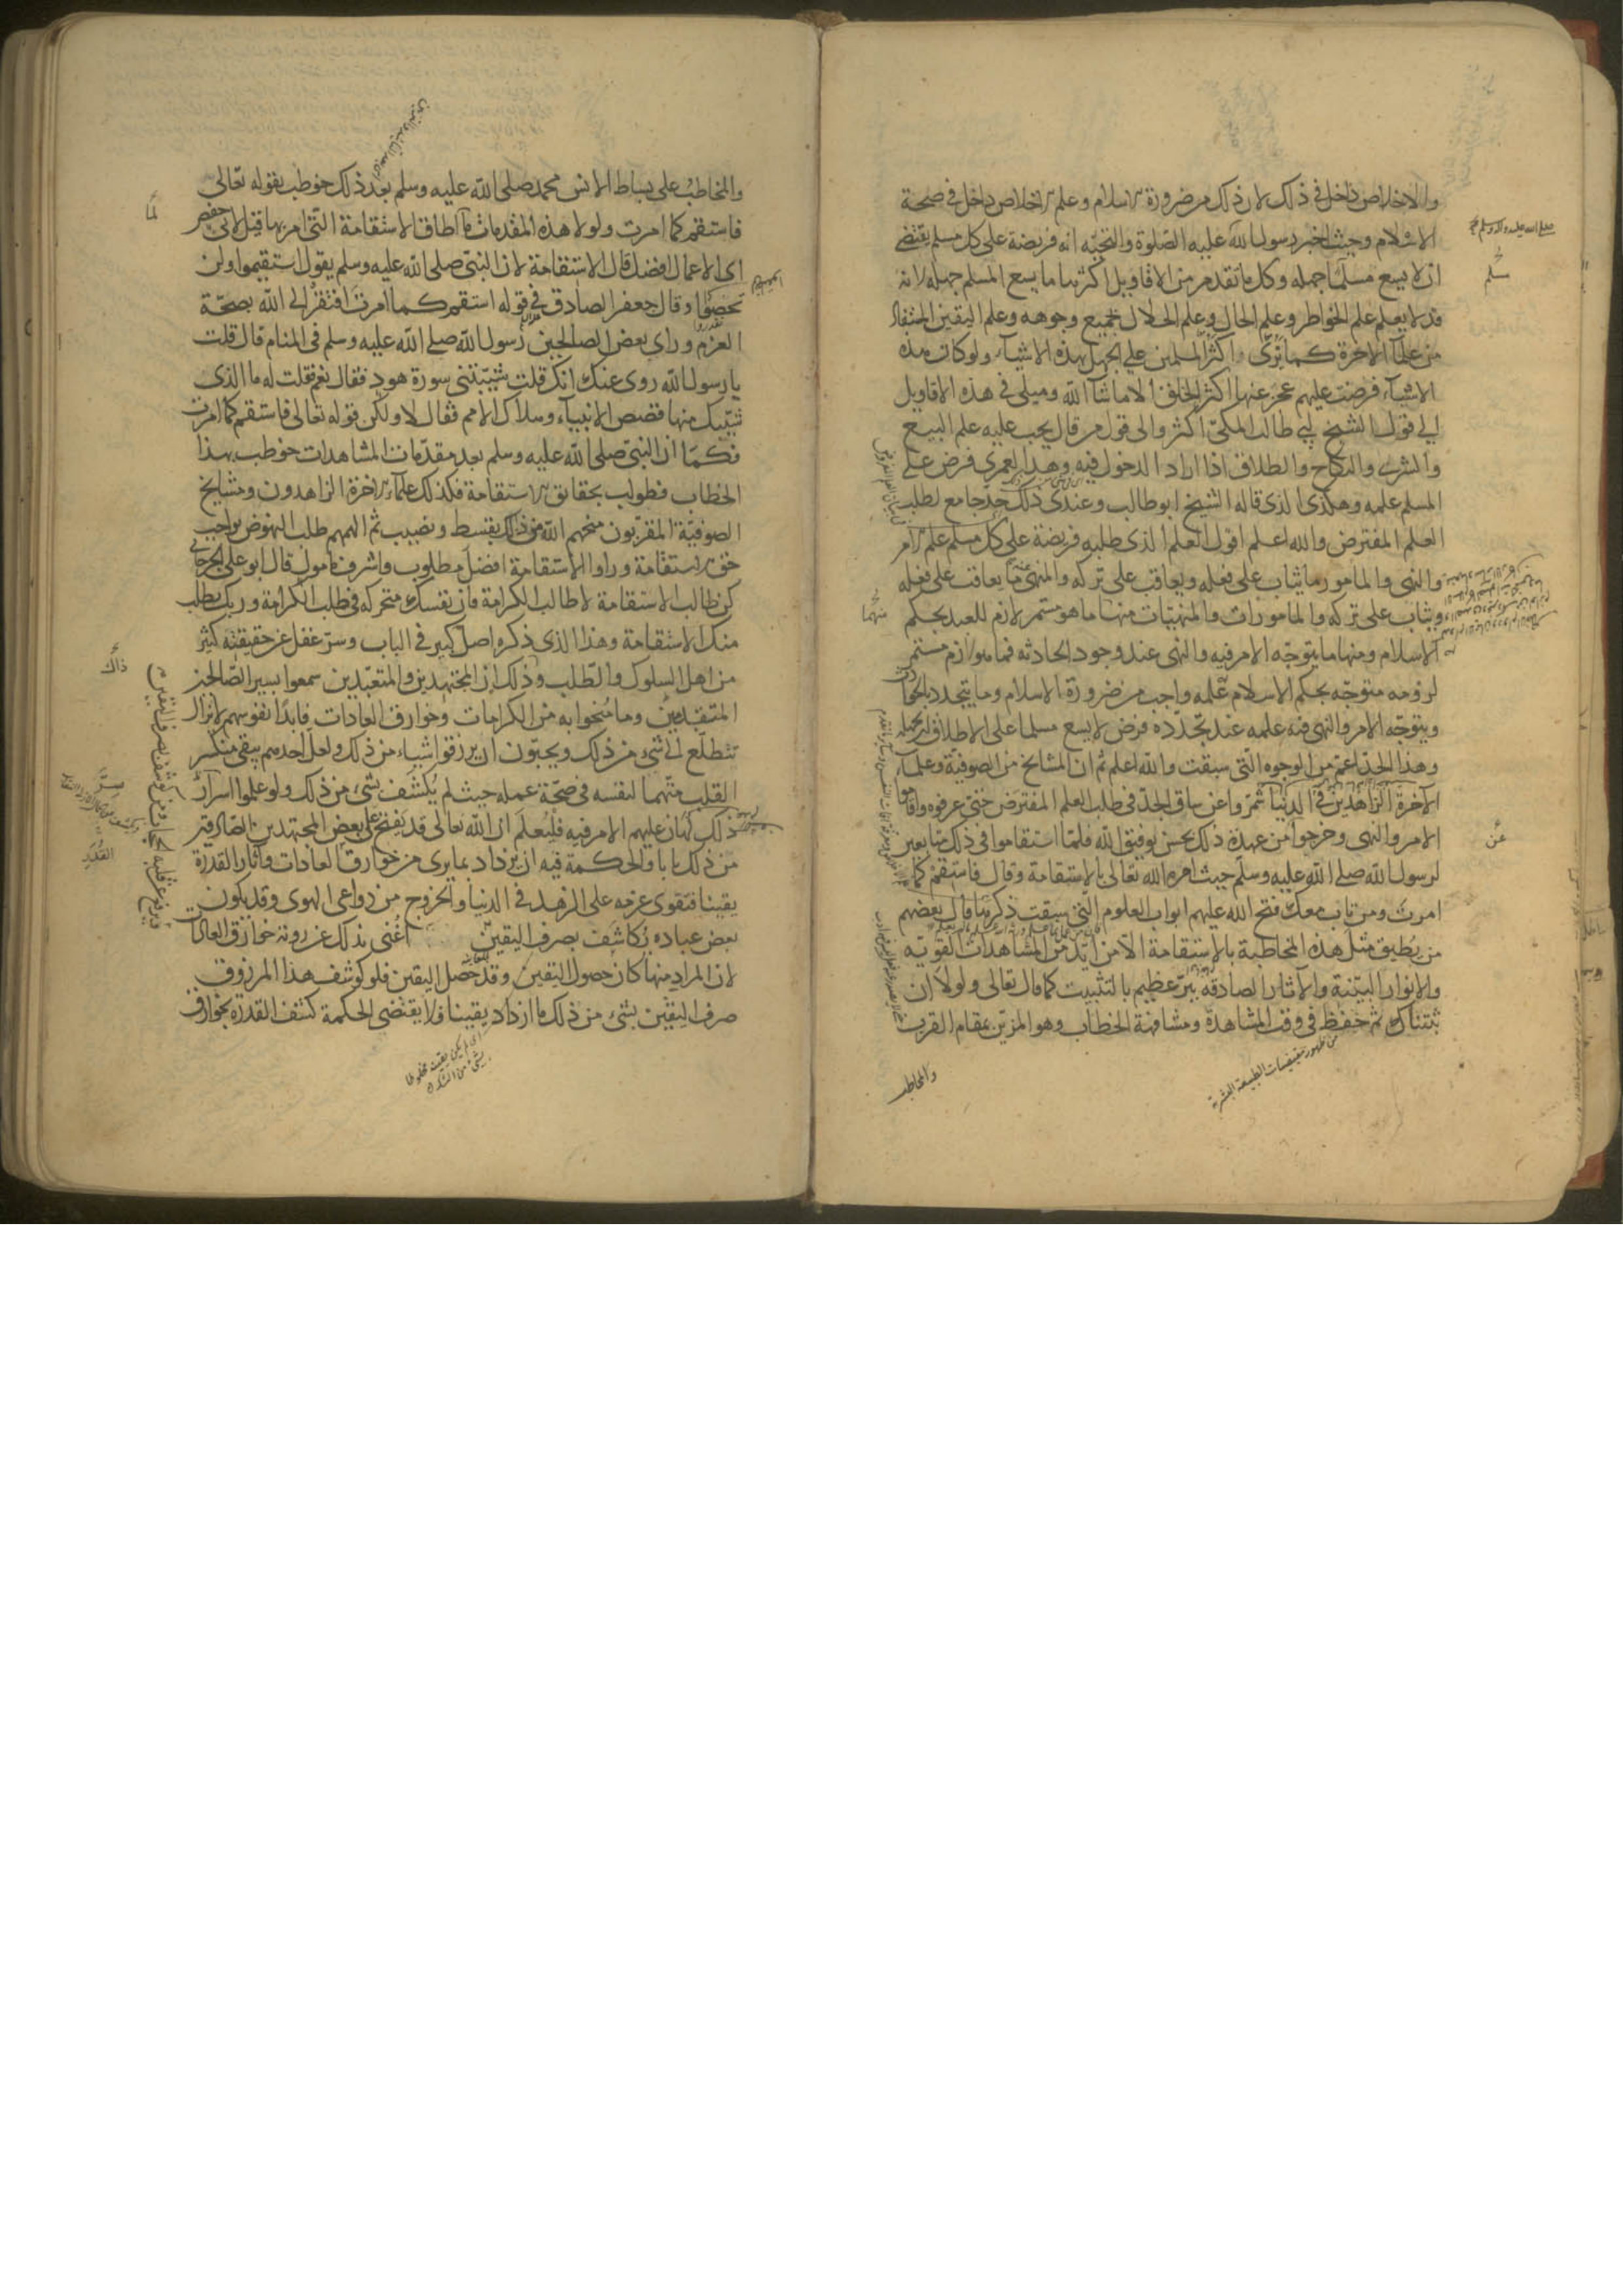 والاخلاص داخل في ذلك لان ذلك من ضرورة الاسلام وعلم الاخلاص داخل في صحة
الاسلام وحيث اخبر رسول الله عليه الصلوة والتحية انه فريضة على كل مسلم يقتضي
ان لا يسع مسلما جهله وكل ما تقدم من الاقاويل اكثرها ما يسع المسلم جهله لانه
قد لا يعلم علم الخواطر وعلم الحال وعلم الحلال بجميع وجوهه وعلم اليقين المستفاد
من علماء الاخرة كما ترى واكثر المسلمين على الجهل بهذه الاشياء ولو كانت هذه
الاشياء فرضت عليهم عجز عنها اكثر الخلق الا ما شاء الله وميلى في هذه الاقاويل
الى قول الشيخ ابي طالب المكي اكثر والى قول من قال يجب عليه علم البيع
والشرى والنكاح والطلاق اذا اراد الدخول فيه وهذا لعمري فرض على
المسلم علمه وهكذى الذى قاله الشيخ ابو طالب وعندى ذلك حد جامع لطلب
العلم المفترض والله اعلم اقول العلم الذى طلبه فريضة على كل مسلم علم الامر
والنهى والمامور ما يثاب على فعله ويعاقب على تركه والمنهى ما يعاقب على فعله
ويثاب على تركه والمامورات والمنهيات منها ما هو مستمر لازم للعبد بحكم
الاسلام ومنها ما يتوجه الامر فيه والنهى عند وجود الحادثه فما هو لازم مستمر
لزومه متوجه بحكم الاسلام علمه واجب من ضرورة الاسلام وما يتجدد بالحوادث
ويتوجه الامر والنهى فيه علمه عند تجدده فرض لا يسع مسلما على الاطلاق ان يجهله
وهذا الحد اعم من الوجوه التى سبقت والله اعلم ثم ان المشايخ من الصوفية وعلماء
الآخرة الزاهدين في الدنيا شمروا عن ساق الجد في طلب العلم المفترض حتى عرفوه واقاموا
الامر والنهى وخرجوا من عهدة ذلك بحسن توفيق الله فلما استقاموا في ذلك متابعين
لرسول الله صلى الله عليه وسلم حيث امره الله تعالى بالاستقامة وقال فاستقم كما
امرت ومن تاب معك فتح الله عليهم ابواب العلوم التى سبق ذكرها قال بعضهم
من يطيق مثل هذه المخاطبة بالاستقامة الا من ايد من المشاهدات القويه
والانوار البينة والآثار الصادقه بسر عظيم بالتثبيت كما قال تعالى ولولا ان
ثبتناك ثم حفظ في وقت المشاهدة ومشافهة الخطاب وهو المزين بمقام القرب
من ظهور مقتضيات الطبيعة البشرية
والمخاطب
مسلم
عن
منهما
والمخاطب على بساط الانس محمد صلى الله عليه وسلم بعد ذلك خوطب بقوله تعالى
فاستقم كما امرت ولولا هذه المقدمات ما اطاق الاستقامة التى امر بها قيل لابى حفص
اى الاعمال افضل قال الاستقامة لان النبى صلى الله عليه وسلم يقول استقيموا ولن
تحصوا وقال جعفر الصادق في قوله استقم كما امرت افتقر الى الله بصحة
العزم وراى بعض الصالحين رسول الله صلى الله عليه وسلم في المنام قال قلت
يا رسول الله روى عنك انك قلت شيبتنى سورة هود فقال نعم فقلت له ما الذى
شيبك منها قصص الانبياء وهلاك الامم فقال لا ولكن قوله تعالى فاستقم كما امرت
فكما ان النبى صلى الله عليه وسلم بعد مقدمات المشاهدات خوطب بهذا
الخطاب وطولب بحقائق الاستقامة فكذلك علماء الاخرة الزاهدون ومشايخ
الصوفية المقربون منحهم الله من ذلك بقسط ونصيب ثم الهمهم طلب النهوض بواجب
حق الاستقامة وراوا الاستقامة افضل مطلوب واشرف مامول قال ابو على الجرجانى
كن طالب الاستقامة لا طالب الكرامة فان نفسك متحركه في طلب الكرامة وربك يطلب
منك الاستقامة وهذا الذى ذكره اصل كبير في الباب وسر غفل عن حقيقته كثير
من اهل السلوك والطلب وذلك ان المجتهدين والمتعبدين سمعوا بسير الصالحين
المتقدمين وما منحوا به من الكرامات وخوارق العادات فابدا نفوسهم لا تزال
تتطلع الى شئ من ذلك ويحبون ان يرزقوا شيئا من ذلك ولعل احدهم يبقى منكسر
القلب متهما لنفسه في صحة عمله حيث لم يكشف بشئ من ذلك ولو علموا اسرار
ذلك لهان عليهم الامر فيه فليعلم ان الله تعالى قد يفتح على بعض المجتهدين الصادقين
من ذلك بابا والحكمة فيه ان يزداد بما يرى من خوارق العادات واثار القدرة
يقينا فيقوى عزمه على الزهد في الدنيا والخروج من دواعى الهوى وقد يكون
بعض عباده يكاشف بصرف اليقين اغنى بذلك عن رؤية خوارق العادات
لان المراد منها كان حصول اليقين وقد حصل اليقين فلو كوشف هذا المرزوق
صرف اليقين بشئ من ذلك ما ازداد يقينا فلا يقتضى الحكمة كشف القدرة بخوارق
لما
ذاك